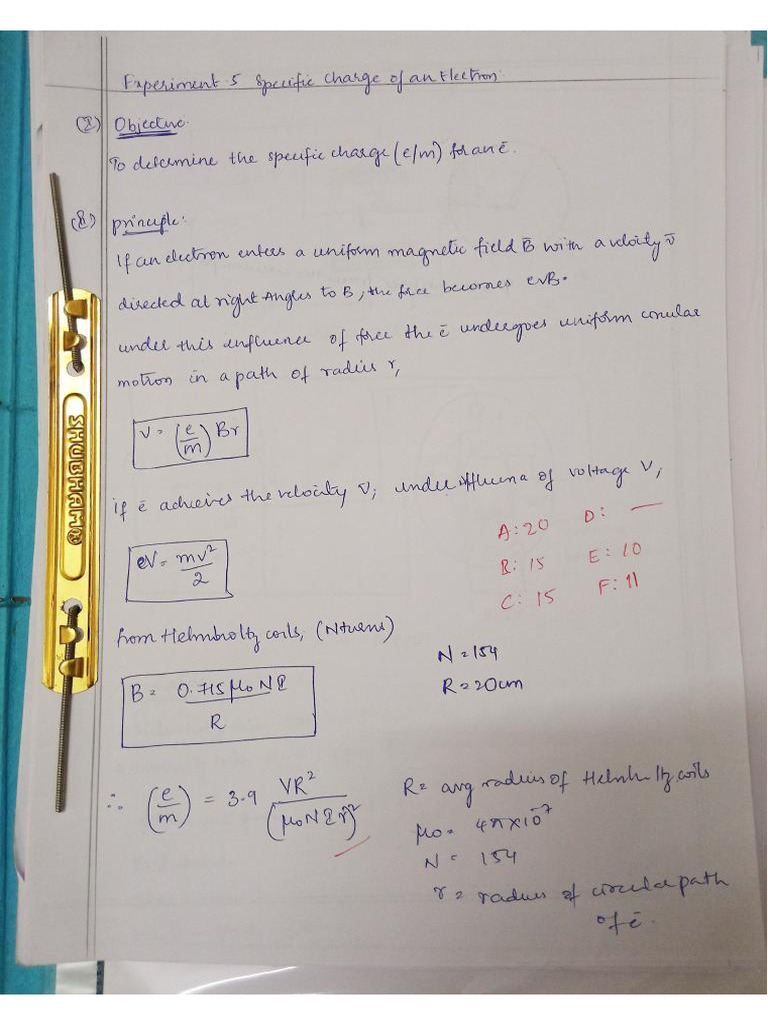 Experiment 5 Specific Charge of an Electron
(I) Objective
To determine the specific charge (e/m) for an ē.
(II) principle:
If an electron enters a uniform magnetic field B̄ with a velocity v̄
directed at right angles to B, the force becomes evB.
under this influence of force the ē undergoes uniform circular
motion in a path of radius r,
V = (e/m) Br
if ē achieves the velocity v̄, under influence of voltage V,
eV = mv²/2
A: 20 D: —
B: 15 E: 10
C: 15 F: 11
SHUBHAM
from Helmholtz coils, (N turns)
N = 154
R = 20cm
B = 0.715 μ₀ N I / R
∴ (e/m) = 3.9 VR² / (μ₀ N I r)²
R = avg radius of Helmholtz coils
μ₀ = 4π × 10⁻⁷
N = 154
r = radius of circular path
of ē.